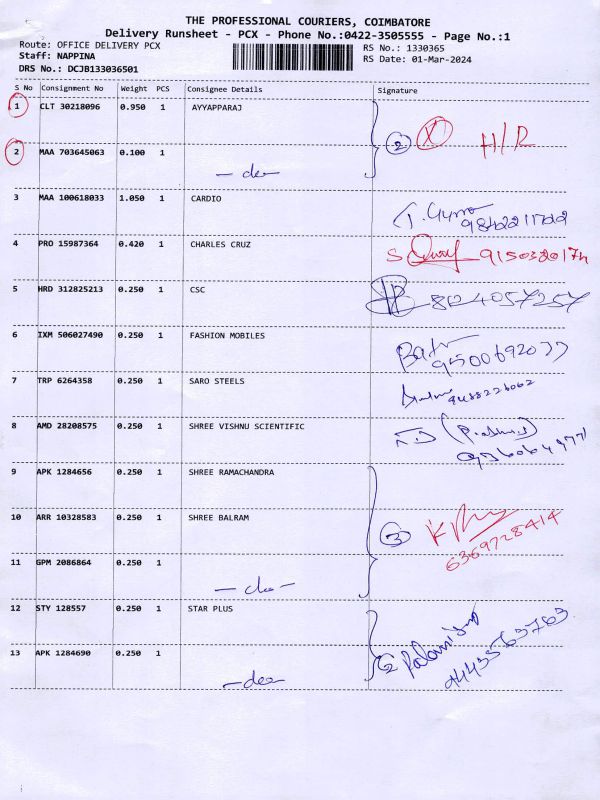 THE PROFESSIONAL COURIERS, COIMBATORE
Delivery Runsheet - PCX - Phone No.:0422-3505555 - Page No.:1
Route: OFFICE DELIVERY PCX
RS No.: 1330365
Staff: NAPPINA
RS Date: 01-Mar-2024
DRS No.: DCJB133036501
S No Consignment No Weight PCS Consignee Details Signature
1 CLT 30218096 0.950 1 AYYAPPARAJ
2 X H/R
2 MAA 703645063 0.100 1
- do -
3 MAA 100618033 1.050 1 CARDIO
4 PRO 15987364 0.420 1 CHARLES CRUZ
5 HRD 312825213 0.250 1 CSC
8124057257
6 IXM 506027490 0.250 1 FASHION MOBILES
9500692077
7 TRP 6264358 0.250 1 SARO STEELS
9488226062
8 AMD 28208575 0.250 1 SHREE VISHNU SCIENTIFIC
9 APK 1284656 0.250 1 SHREE RAMACHANDRA
10 ARR 10328583 0.250 1 SHREE BALRAM
3
6369728414
11 GPM 2086864 0.250 1
- do -
12 STY 128557 0.250 1 STAR PLUS
13 APK 1284690 0.250 1
2
9443563763
- do -